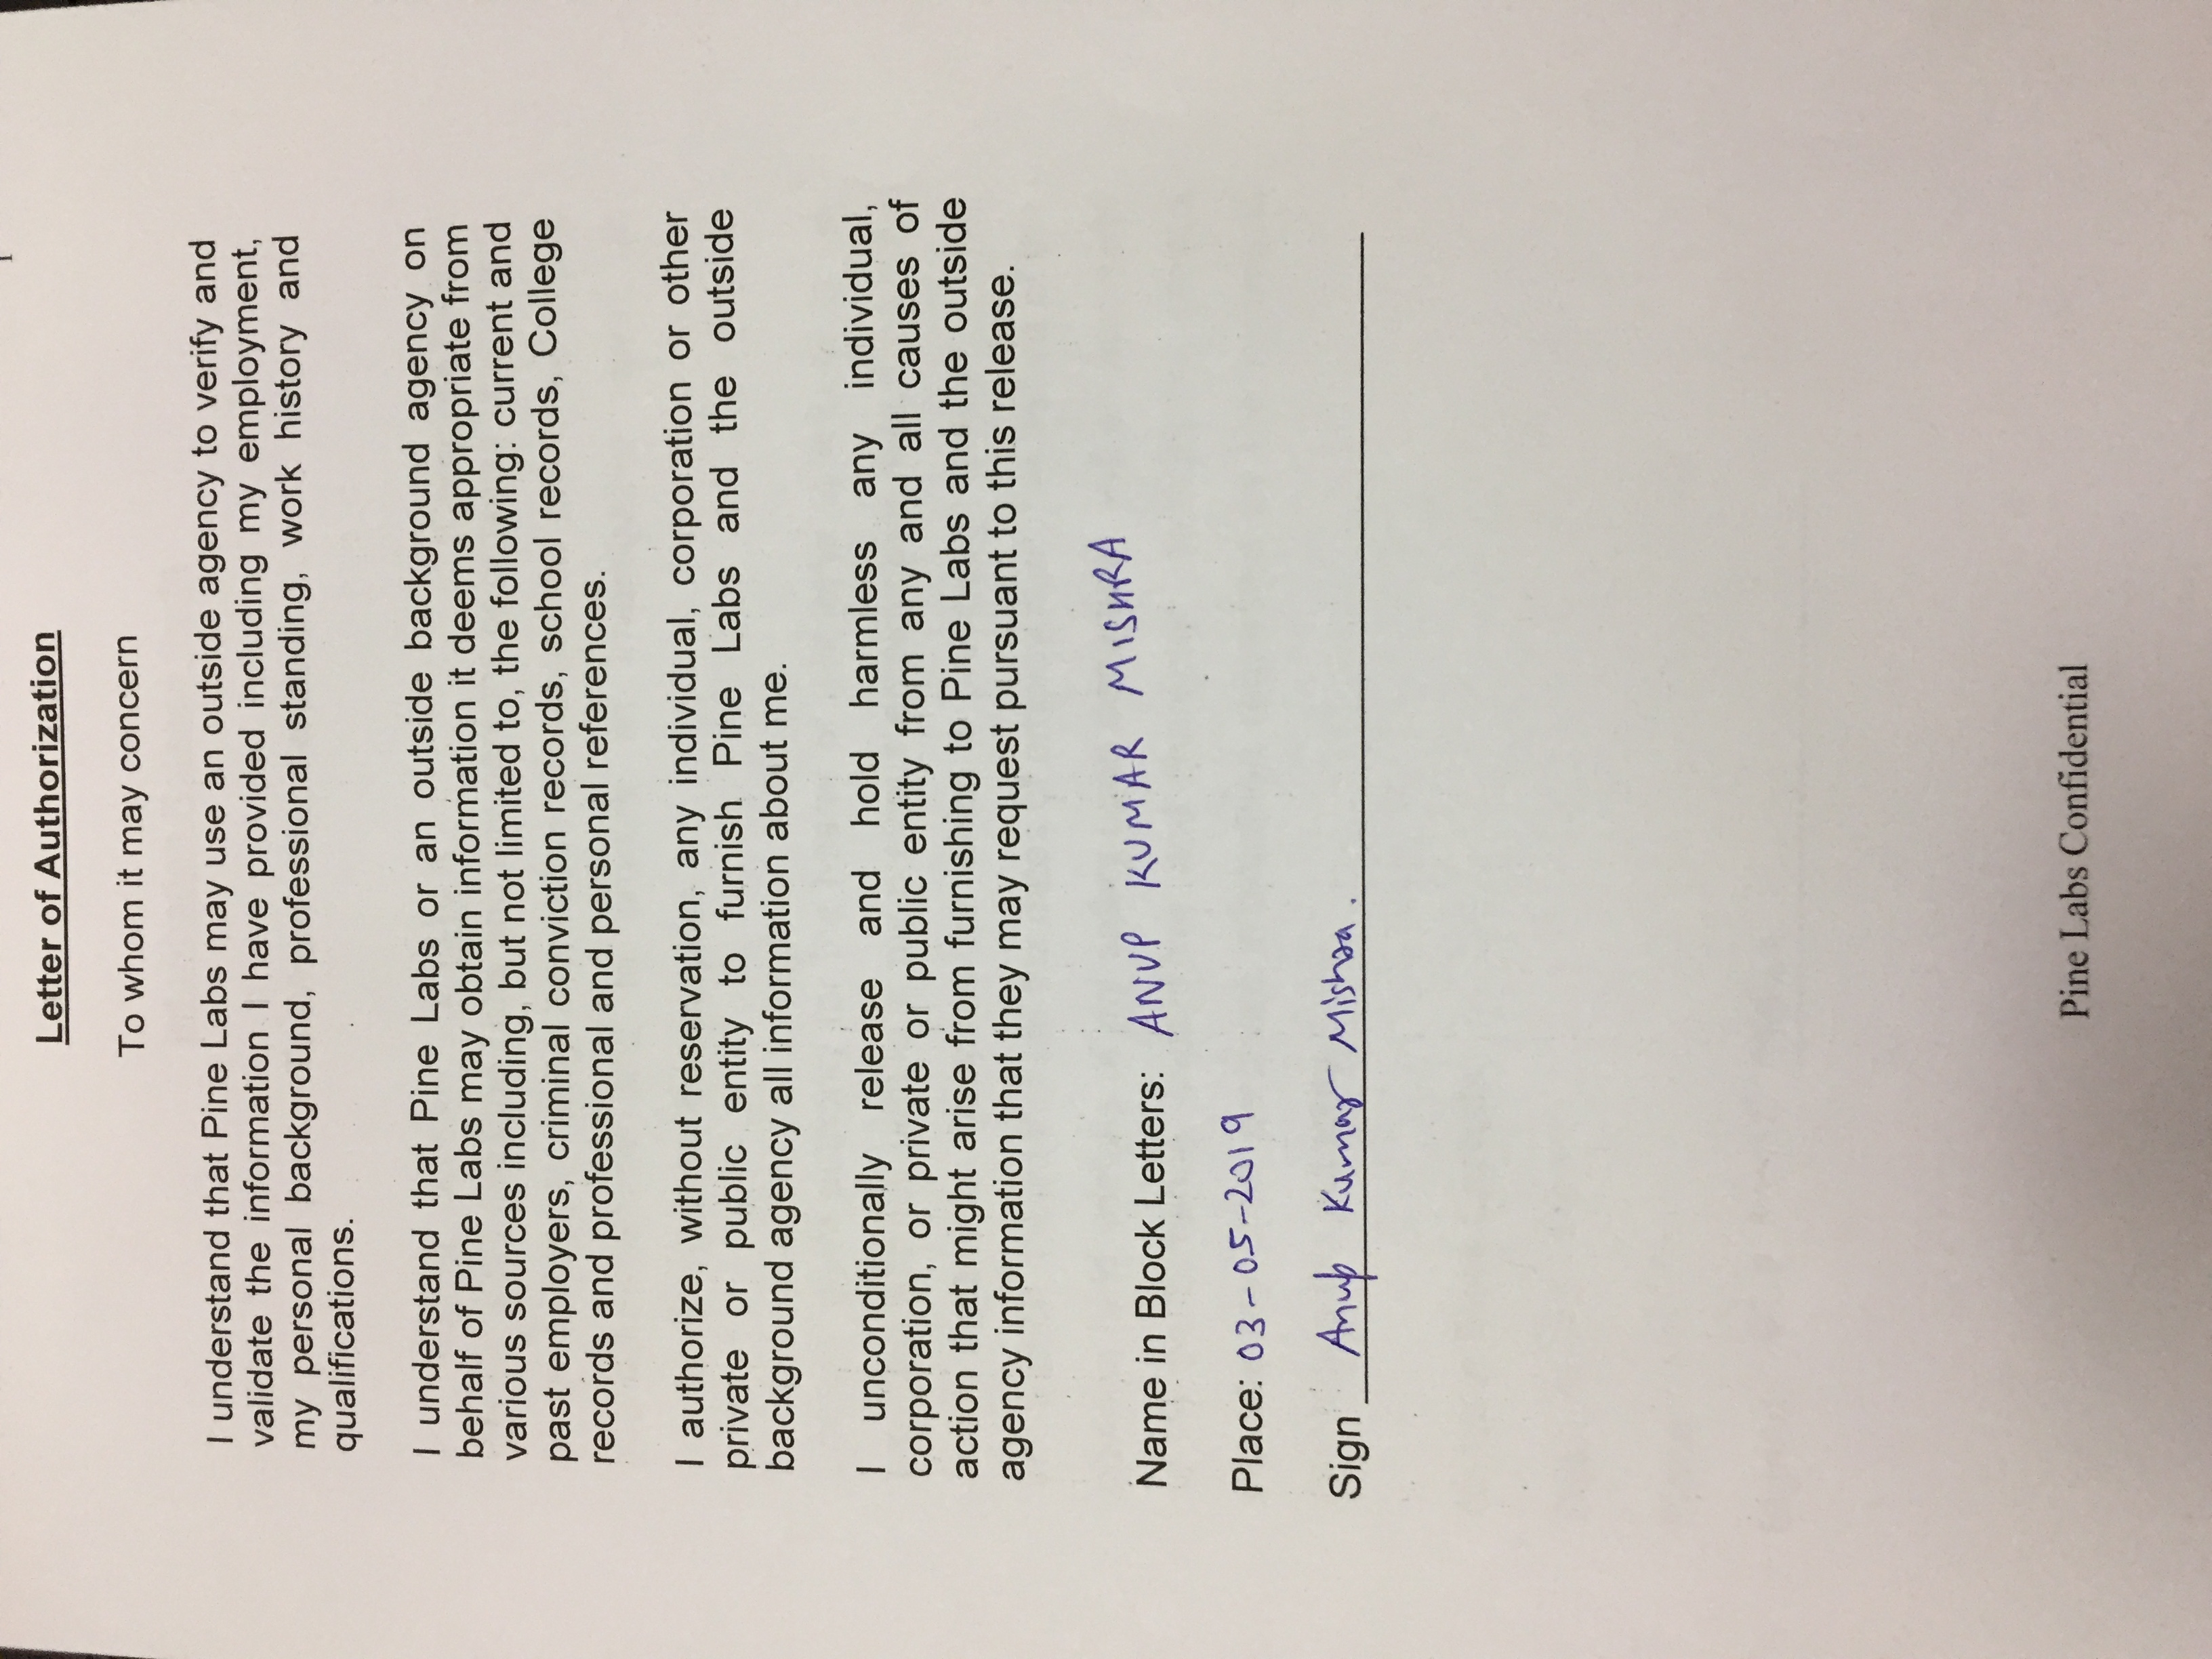 Letter of Authorization
To whom it may concern
I understand that Pine Labs may use an outside agency to verify and
validate the information I have provided including my employment,
my personal background, professional standing, work history and
qualifications.
I understand that Pine Labs or an outside background agency on
behalf of Pine Labs may obtain information it deems appropriate from
various sources including, but not limited to, the following: current and
past employers, criminal conviction records, school records, College
records and professional and personal references.
I authorize, without reservation, any individual, corporation or other
private or public entity to furnish Pine Labs and the outside
background agency all information about me.
I unconditionally release and hold harmless any individual,
corporation, or private or public entity from any and all causes of
action that might arise from furnishing to Pine Labs and the outside
agency information that they may request pursuant to this release.
Name in Block Letters: ANUP KUMAR MISHRA
Place: 03-05-2019
Sign Anup Kumar Mishra.
Pine Labs Confidential